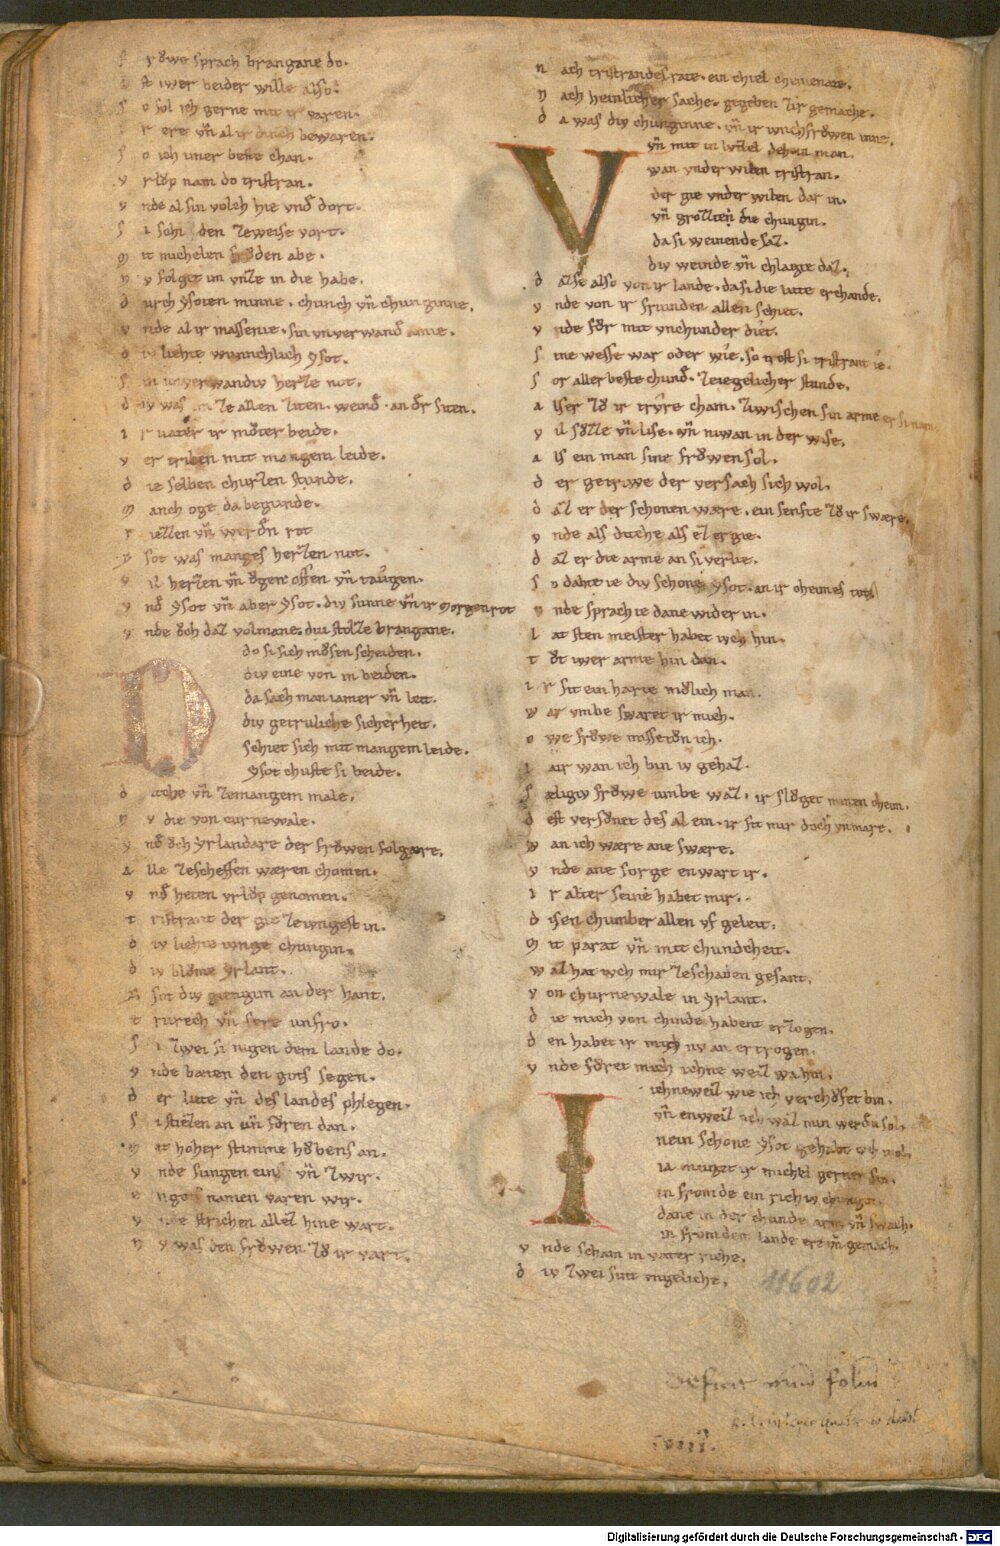 f rŏwe sprach brangane do.
ſt iwer beider wille also.
s o sol ich gerne mit ir varen.
ir ere vn̄ al ir dinch bewaren.
s o ich imer beste chan.
v rlŏp nam do tristran.
v nde al sin volch hie vnd̄ dort.
s i schi den zeweise vort.
m it michelen frŏden abe.
n v folget im vnze in die habe.
d urch ysoten minne. chunich vn̄ chuniginne.
v nde al ir massenie. sin vnverwand̄ amie.
d iv liehte wunnchlich ysot.
s in unverwandiv herze not.
d iv was im ze allen ziten. weind̄ an d̄r siten.
i r vater ir mŏter beide.
v er triben mit mangem leide.
d ie selben churzen stunde.
m anch oge da begunde.
r iezzen vn̄ werd̄n rot
y sot was manges herzen not.
v il herzen vn̄ ŏgen offen vn̄ taugen.
v nd̄ ysot vn̄ aber ysot. div sunne vn̄ ir morgenrot
v nde ŏch daz volmane. diu stolze brangane.
do si sich mŏsen scheiden.
div eine von in beiden.
D da sach man iamer vn̄ leit.
div getruliche sicherheit.
schiet sich mit mangem leide.
ysot chuste si beide.
d iche vn̄ zemangem male.
n v die von curnewale.
v nd̄ ŏch yrlandare der frŏwen folgære.
a lle zescheffen wæren chomen.
v nd̄ heten vrlŏp genomen.
t ristrant der gie ze iungest in.
d iv liehte iunge chungin.
d iv blŏme yrlant.
y sot div giengim an der hant.
t rurech vn̄ sere unfro.
s i zwei si nigen dem lande do.
v nde bæten den gots segen.
d er lute vn̄ des landes phlegen.
s i stiezen an vn̄ fŏren dan.
m it hoher stimme hŏbens an.
v nde sungen eins vn̄ zwir.
e n gots namen varen wir.
v nde strichen allez hine wart.
n v was den frŏwen zŏ ir vart.
n ach tristrandes rate. ein chiel chemenate.
n ach heinlicher sache. gegeben zir gemache.
d a was div chunginne. vn̄ ir iunchfrŏwen inne.
V vn̄ mit in lvzzel dehein man.
wan vnder wilen tristran.
der gie vnder wilen dar in.
vn̄ trosten die chungin.
da si weinende saz.
div weinde vn̄ chlagte daz.
d alse also von ir lande. da si die lute erchande.
v nde von ir friunden allen schiet.
v nde fŏr mit vnchunder diet.
s ine wesse war oder wie. so trost si tristrant ie.
s or aller beste chund̄. zeiegelicher stunde.
a lser zŏ ir tryre cham. zwischen sin arme er si nam
v il sŏzze vn̄ lise. vn̄ niwan in der wise.
a ls ein man sine frŏwen sol.
d er getriwe der versach sich wol.
d az er der schonen wære. ein senfte zŏ ir swære.
v nde als diche als ez ergie.
d az er die arme an si verlie.
s o dahte ie div schone ysot. an ir oheimes tot
v nde sprach ie dane wider in.
l at sten meister habet iuch hin.
t ŏt iwer arme hin dan.
i r sit ein harte mŏlich man.
w ar vmbe swæret ir mich.
o we frŏwe missetŏn ich.
i air wan ich bin iv gehaz.
s æligiv frŏwe umbe waz. ir slŏget minen oheim.
d est versŏnet des al ein. ir sit mir doch vnmære.
w an ich wære ane swære.
v nde ane sorge enwart ir.
i r alter seine habet mir.
d isen chumber allen vf geleit.
m it parat vn̄ mit chundeheit.
w az hat iuch mir zeschaden gesant.
v on churnewale in yrlant.
d ie mich von chinde habent erzogen.
d en habet ir mich nv an ertrogen.
v nde fŏret mich ichne weiz wahin.
I ichneweiz wie ich verchŏfet bin.
vn̄ enweiz ŏch waz min werdn̄ sol.
nein schone ysot gehabt iuch wol.
ia muget ir michel gerner sin.
in fromde ein rich iv chungin.
dane in der chunde arm vn̄ swach.
in fromdem lande ere vn̄ gemach.
v nde scham in vater riche.
d iv zwei sint vngeliche.
11602
deficit unum folium
VIIII.
Digitalisierung gefördert durch die Deutsche Forschungsgemeinschaft - DFG